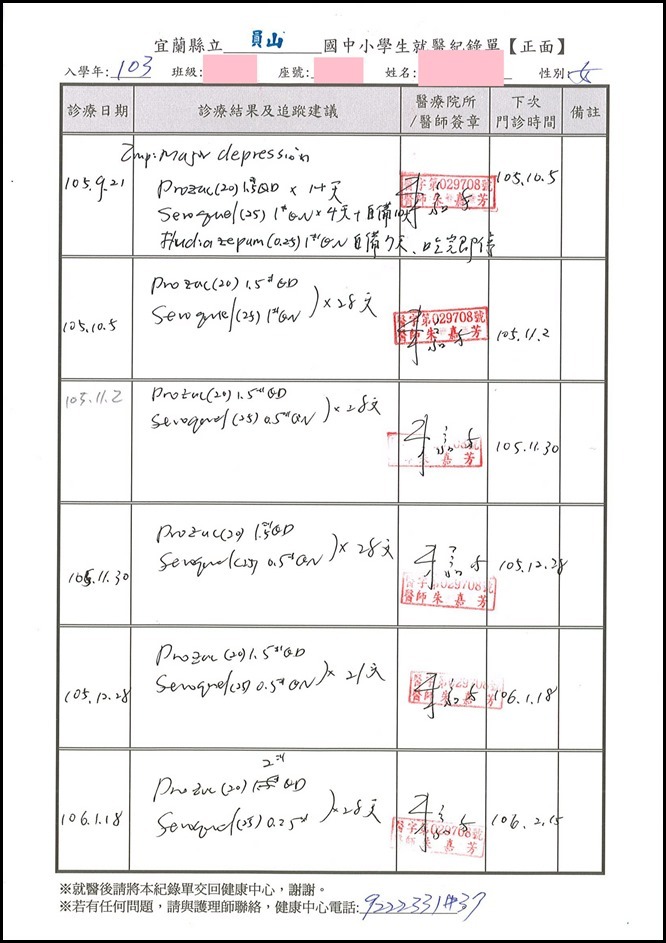 宜蘭縣立 員山 國中小學生就醫紀錄單【正面】
入學年: 103 班級: 座號: 姓名: 性別: 女
診療日期 診療結果及追蹤建議 醫療院所/醫師簽章 下次門診時間 備註
Imp: Major depression
105.9.21 Prozac (20) 1.5# QD × 14天 醫字第029708號 醫師 朱嘉芳 105.10.5
Seroquel (25) 1# QN × 4天 + 自備10天
Fludiazepam (0.25) 1# QN 自備7天、吃完即停
Prozac (20) 1.5# QD
105.10.5 Seroquel (25) 1# QN ) × 28天 醫字第029708號 醫師 朱嘉芳 105.11.2
105.11.2 Prozac (20) 1.5# QD
Seroquel (25) 0.5# QN ) × 28天 嘉芳 105.11.30
Prozac (20) 1.5# QD
105.11.30 Seroquel (25) 0.5# QN ) × 28天 醫字第029708號 醫師 朱嘉芳 105.12.28
Prozac (20) 1.5# QD
105.12.28 Seroquel (25) 0.5# QN ) × 21天 醫字第029708號 醫師 朱嘉芳 106.1.18
2#
Prozac (20) QD
106.1.18 Seroquel (25) 0.25# ) × 28天 醫字第029708號 醫師 朱嘉芳 106.2.15
※就醫後請將本紀錄單交回健康中心，謝謝。
※若有任何問題，請與護理師聯絡，健康中心電話: 9222331#37